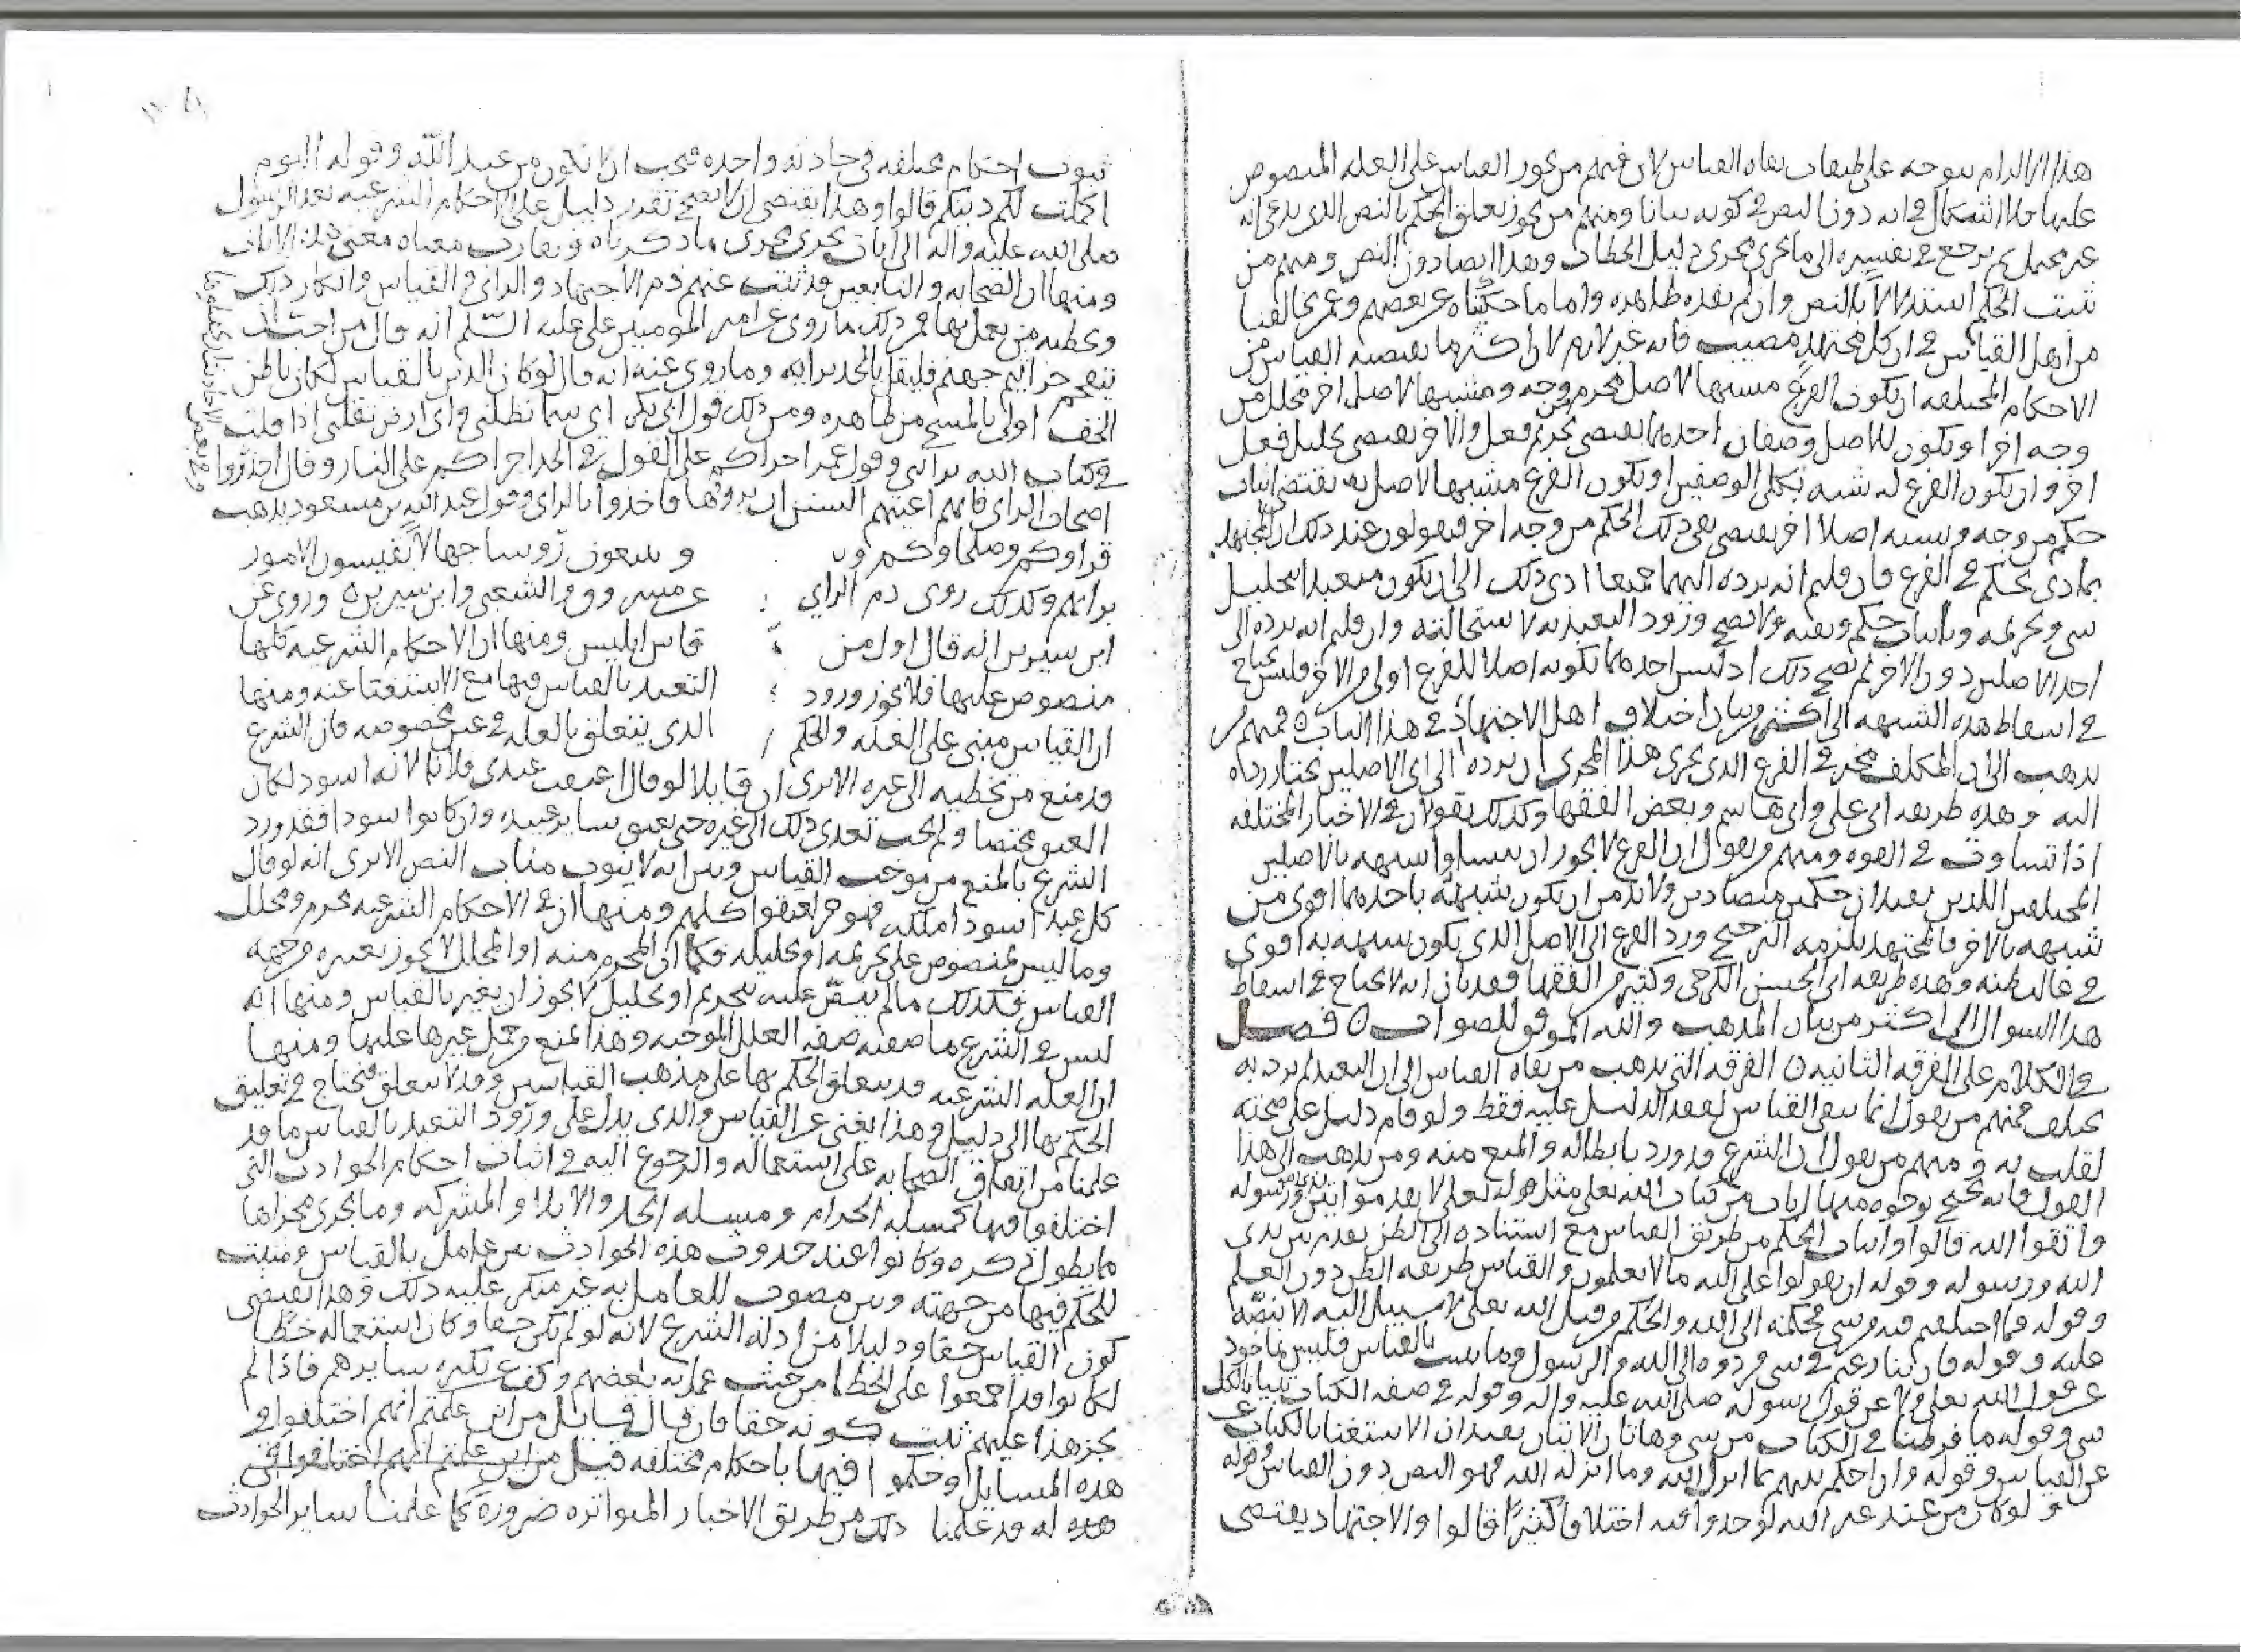 هذا الالزام يتوجه على طبقات نفاه القياس لان فيهم من يجوز القياس على العله المنصوص
عليها فلا اشكال في انه دون النص في كونه بيانا ومنهم من يجوز تعلق الحكم بالنص الذي يدعي انه
غير محتمل ثم يرجع في تفسيره الى ما يجري مجرى دليل الخطاب وهذا ايضا دون النص ومنهم من
يثبت الحكم استدلالا بالنص وان لم يفده ظاهره واما ما حكيناه عن بعضهم وعمن يخالفنا
من اهل القياس في ان كل مجتهد مصيب فانه غير لازم لان اكثر ما يقتضيه القياس من
الاحكام المختلفه ان يكون الفرع مشبها لاصل محرم من وجه ومشبها لاصل اخر محلل من
وجه اخر او يكون للاصل وصفان احدهما يقتضي تحريم فعل والاخر يقتضي تحليل فعل
اخر وان يكون الفرع له شبه بكلى الوصفين او يكون الفرع مشبها لاصل به يقتضي اثبات
حكم من وجه ويشبه اصلا اخر يقتضي نفي ذلك الحكم من وجه اخر فيقولون عند ذلك ان المجتهد
بماذى يحكم في الفرع فان قلتم انه يرده اليهما جميعا ادى ذلك الى ان يكون متعبدا بتحليل
شي وتحريمه وباثبات حكم ونفيه ولا يصح ورود التعبد به لاستحالته وان قلتم انه يرده الى
احد الاصلين دون الاخر لم يصح ذلك اذ ليس احدهما بكونه اصلا للفرع اولى من الاخر فليس يحتاج
في اسقاط هذه الشبهه الى اكثر من بيان اختلاف اهل الاجتهاد في هذا الباب فمنهم من
يذهب الى ان المكلف مخير في الفرع الذي يجري هذا المجرى ان يرده الى اي الاصلين يختار رده
اليه وهذه طريقه ابي علي وابي هاشم وبعض الفقها وكذلك يقولان في الاخبار المختلفه
اذا تساوت في القوه ومنهم من يقول ان الفرع لا يجوز ان يتساوا شبهه بالاصلين
المختلفين اللذين يفيدان حكمين متضادين ولا بد من ان يكون شبهه باحدهما اقوى من
شبهه بالاخر فالمجتهد يلزمه الترجيح ورد الفرع الى الاصل الذي يكون شبهه به اقوى
في غالب ظنه وهذه طريقه ابي الحسن الكرخي وكثير من الفقها فقد بان انه لا يحتاج في اسقاط
هذا السوال الى اكثر من بيان المذهب والله الموفق للصواب ن فصــل
في الكلام على الفرقه الثانيه ن الفرقه التي يذهب من نفاه القياس الى ان التعبد لم يرد به
يختلف فمنهم من يقول انما ينفى القياس لفقد الدليل عليه فقط ولو قام دليل على صحته
لقلت به ومنهم من يقول ان الشرع قد ورد بابطاله والمنع منه ومن يذهب الى هذا
القول فانه يحتج بوجوه منها ايات من كتاب الله تعالى مثل قوله تعالى لا تقدموا بين يدى الله ورسوله
واتقوا الله قالوا واثبات الحكم من طريق القياس مع استناده الى الظن تقدم بين يدى
الله ورسوله وقوله ان تقولوا على الله ما لا تعلمون والقياس طريقه الظن دون العلم
وقوله وما اختلفتم فيه من شي فحكمه الى الله والحكم من قبل الله تعالى لا سبيل اليه الا بنصه
عليه وقوله فان تنازعتم في شي فردوه الى الله والرسول وما يثبت بالقياس فليس بماخوذ
عن قول الله تعالى ولا عن قول رسوله صلى الله عليه واله وقوله في صفه الكتاب تبيانا لكل
شي وقوله ما فرطنا في الكتاب من شي وهاتان الايتان يفيدان الاستغنا بالكتاب عن
عن القياس وقوله وان احكم بينهم بما انزل الله وما انزله الله فهو النص دون القياس وقوله
ولو كان من عند غير الله لوجدوا فيه اختلافا كثيرا قالوا والاجتهاد يقتضي
ثبوت احكام مختلفه في حادثه واحده فيجب ان لا تكون من عند الله وقوله اليوم
اكملت لكم دينكم قالوا وهذا يقتضي ان لا يصح تقدير دليل على الاحكام الشرعيه بعد الرسول
صلى الله عليه واله الى ايات تجري مجرى ما ذكرناه وتقارب معناه معنى هذه الايات
ومنها ان الصحابه والتابعين قد ثبت عنهم ذم الاجتهاد والراي والقياس وانكار ذلك
وتخطيه من يعمل بها فمن ذلك ما روي عن امير المومنين علي عليه السلم انه قال من احب ان
يتقحم جراثيم جهنم فليقل بالجد برايه وما روى عنه انه قال لو كان الدين بالقياس لكان باطن
الخف اولى بالمسح من ظاهره ومن ذلك قول ابي بكر اي سما تظلني واي ارض تقلني اذا قلت
في كتاب الله برايي وقول عمر اجراكم على القول في الجد اجراكم على النار وقال احذروا
اصحاب الراي فانهم اعيتهم السنن ان يرووها فاخذوا بالراي وقول عبد الله بن مسعود يذهب
قراوكم وصلحاوكم و ويتبعون روسا جهالا يقيسون الامور
برايهم وكذلك روى ذم الراي عن مسروق والشعبي وابن سيرين وروى عن
ابن سيرين انه قال اول من قاس ابليس ومنها ان الاحكام الشرعيه كلها
منصوص عليها فلا يجوز ورود التعبد بالقياس فيها مع الاستغنا عنه ومنها
ان القياس مبني على العله والحكم الذي يتعلق بالعله في عين مخصوصه فان الشرع
قد منع من تخطيه الى غيره الا ترى ان قايلا لو قال اعتقت عبدي فلانا لانه اسود لكان
العتق مختصا ولم يجب تعدى ذلك الى غيره حتى يعتق ساير عبيده وان كانوا سودا فقد ورد
الشرع بالمنع من موجب القياس وبين انه لا ينوب مناب النص الا ترى انه لو قال
كل عبد اسود املكه فهو حر لعتقوا كلهم ومنها ان في الاحكام الشرعيه محرم ومحلل
وما ليس بمنصوص على تحريمه او تحليله فكما ان المحرم منه او المحلل لا يجوز تغييره من جهه
القياس فكذلك ما لم ينص عليه بتحريم او تحليل لا يجوز ان يغير بالقياس ومنها انه
ليس في الشرع ما صفته صفه العلل الموجبه وهذا يمنع من حمل غيرها عليها ومنها
ان العله الشرعيه قد يتعلق الحكم بها على مذهب القياسين وقد لا يتعلق فتحتاج في تعليق
الحكم بها الى دليل وهذا يغني عن القياس والذي يدل على ورود التعبد بالقياس ما قد
علمنا من اتفاق الصحابه على استعماله والرجوع اليه في اثبات احكام الحوادث التي
اختلفوا فيها كمسله الحرام ومسله الجد والايلا والمشركه وما يجرى مجراها
مما يطول ذكره وكانوا عند حدوث هذه الحوادث بين عامل بالقياس ومثبت
للحكم فيها من جهته وبين مصوب للعامل به غير منكر عليه ذلك وهذا يقتضي
كون القياس حقا ودليلا من ادله الشرع لانه لو لم يكن حقا وكان استعماله خطا
لكانوا قد اجمعوا على الخطا من حيث عمل به بعضهم وكف عن نكيره سايرهم فاذا لم
يجز هذا عليهم ثبت كونه حقا فان قال قايل من اين علمتم انهم اختلفوا في
هذه المسايل وحكموا فيها باحكام مختلفه قيل من اين علمتم انهم اختلفوا في
هذه له قد علمنا ذلك من طريق الاخبار المتواتره ضرورة كما علمنا ساير الحوادث